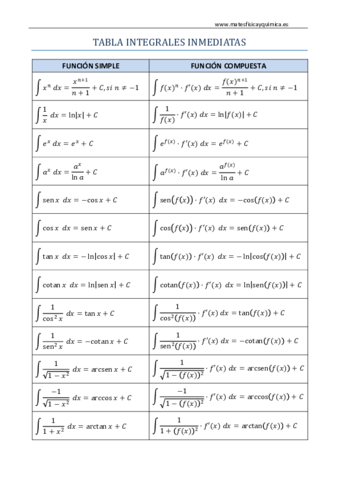 www.matesfisicayquimica.es
TABLA INTEGRALES INMEDIATAS
FUNCIÓN SIMPLE FUNCIÓN COMPUESTA
∫ xⁿ dx = xⁿ⁺¹/(n + 1) + C, si n ≠ −1 ∫ f(x)ⁿ · f′(x) dx = f(x)ⁿ⁺¹/(n + 1) + C, si n ≠ −1
∫ 1/x dx = ln|x| + C ∫ 1/f(x) · f′(x) dx = ln|f(x)| + C
∫ eˣ dx = eˣ + C ∫ e^f(x) · f′(x) dx = e^f(x) + C
∫ aˣ dx = aˣ/ln a + C ∫ a^f(x) · f′(x) dx = a^f(x)/ln a + C
∫ sen x dx = −cos x + C ∫ sen(f(x)) · f′(x) dx = −cos(f(x)) + C
∫ cos x dx = sen x + C ∫ cos(f(x)) · f′(x) dx = sen(f(x)) + C
∫ tan x dx = −ln|cos x| + C ∫ tan(f(x)) · f′(x) dx = −ln|cos(f(x))| + C
∫ cotan x dx = ln|sen x| + C ∫ cotan(f(x)) · f′(x) dx = ln|sen(f(x))| + C
∫ 1/cos² x dx = tan x + C ∫ 1/cos²(f(x)) · f′(x) dx = tan(f(x)) + C
∫ 1/sen² x dx = −cotan x + C ∫ 1/sen²(f(x)) · f′(x) dx = −cotan(f(x)) + C
∫ 1/√(1 − x²) dx = arcsen x + C ∫ 1/√(1 − (f(x))²) · f′(x) dx = arcsen(f(x)) + C
∫ −1/√(1 − x²) dx = arccos x + C ∫ −1/√(1 − (f(x))²) · f′(x) dx = arccos(f(x)) + C
∫ 1/(1 + x²) dx = arctan x + C ∫ 1/(1 + (f(x))²) · f′(x) dx = arctan(f(x)) + C